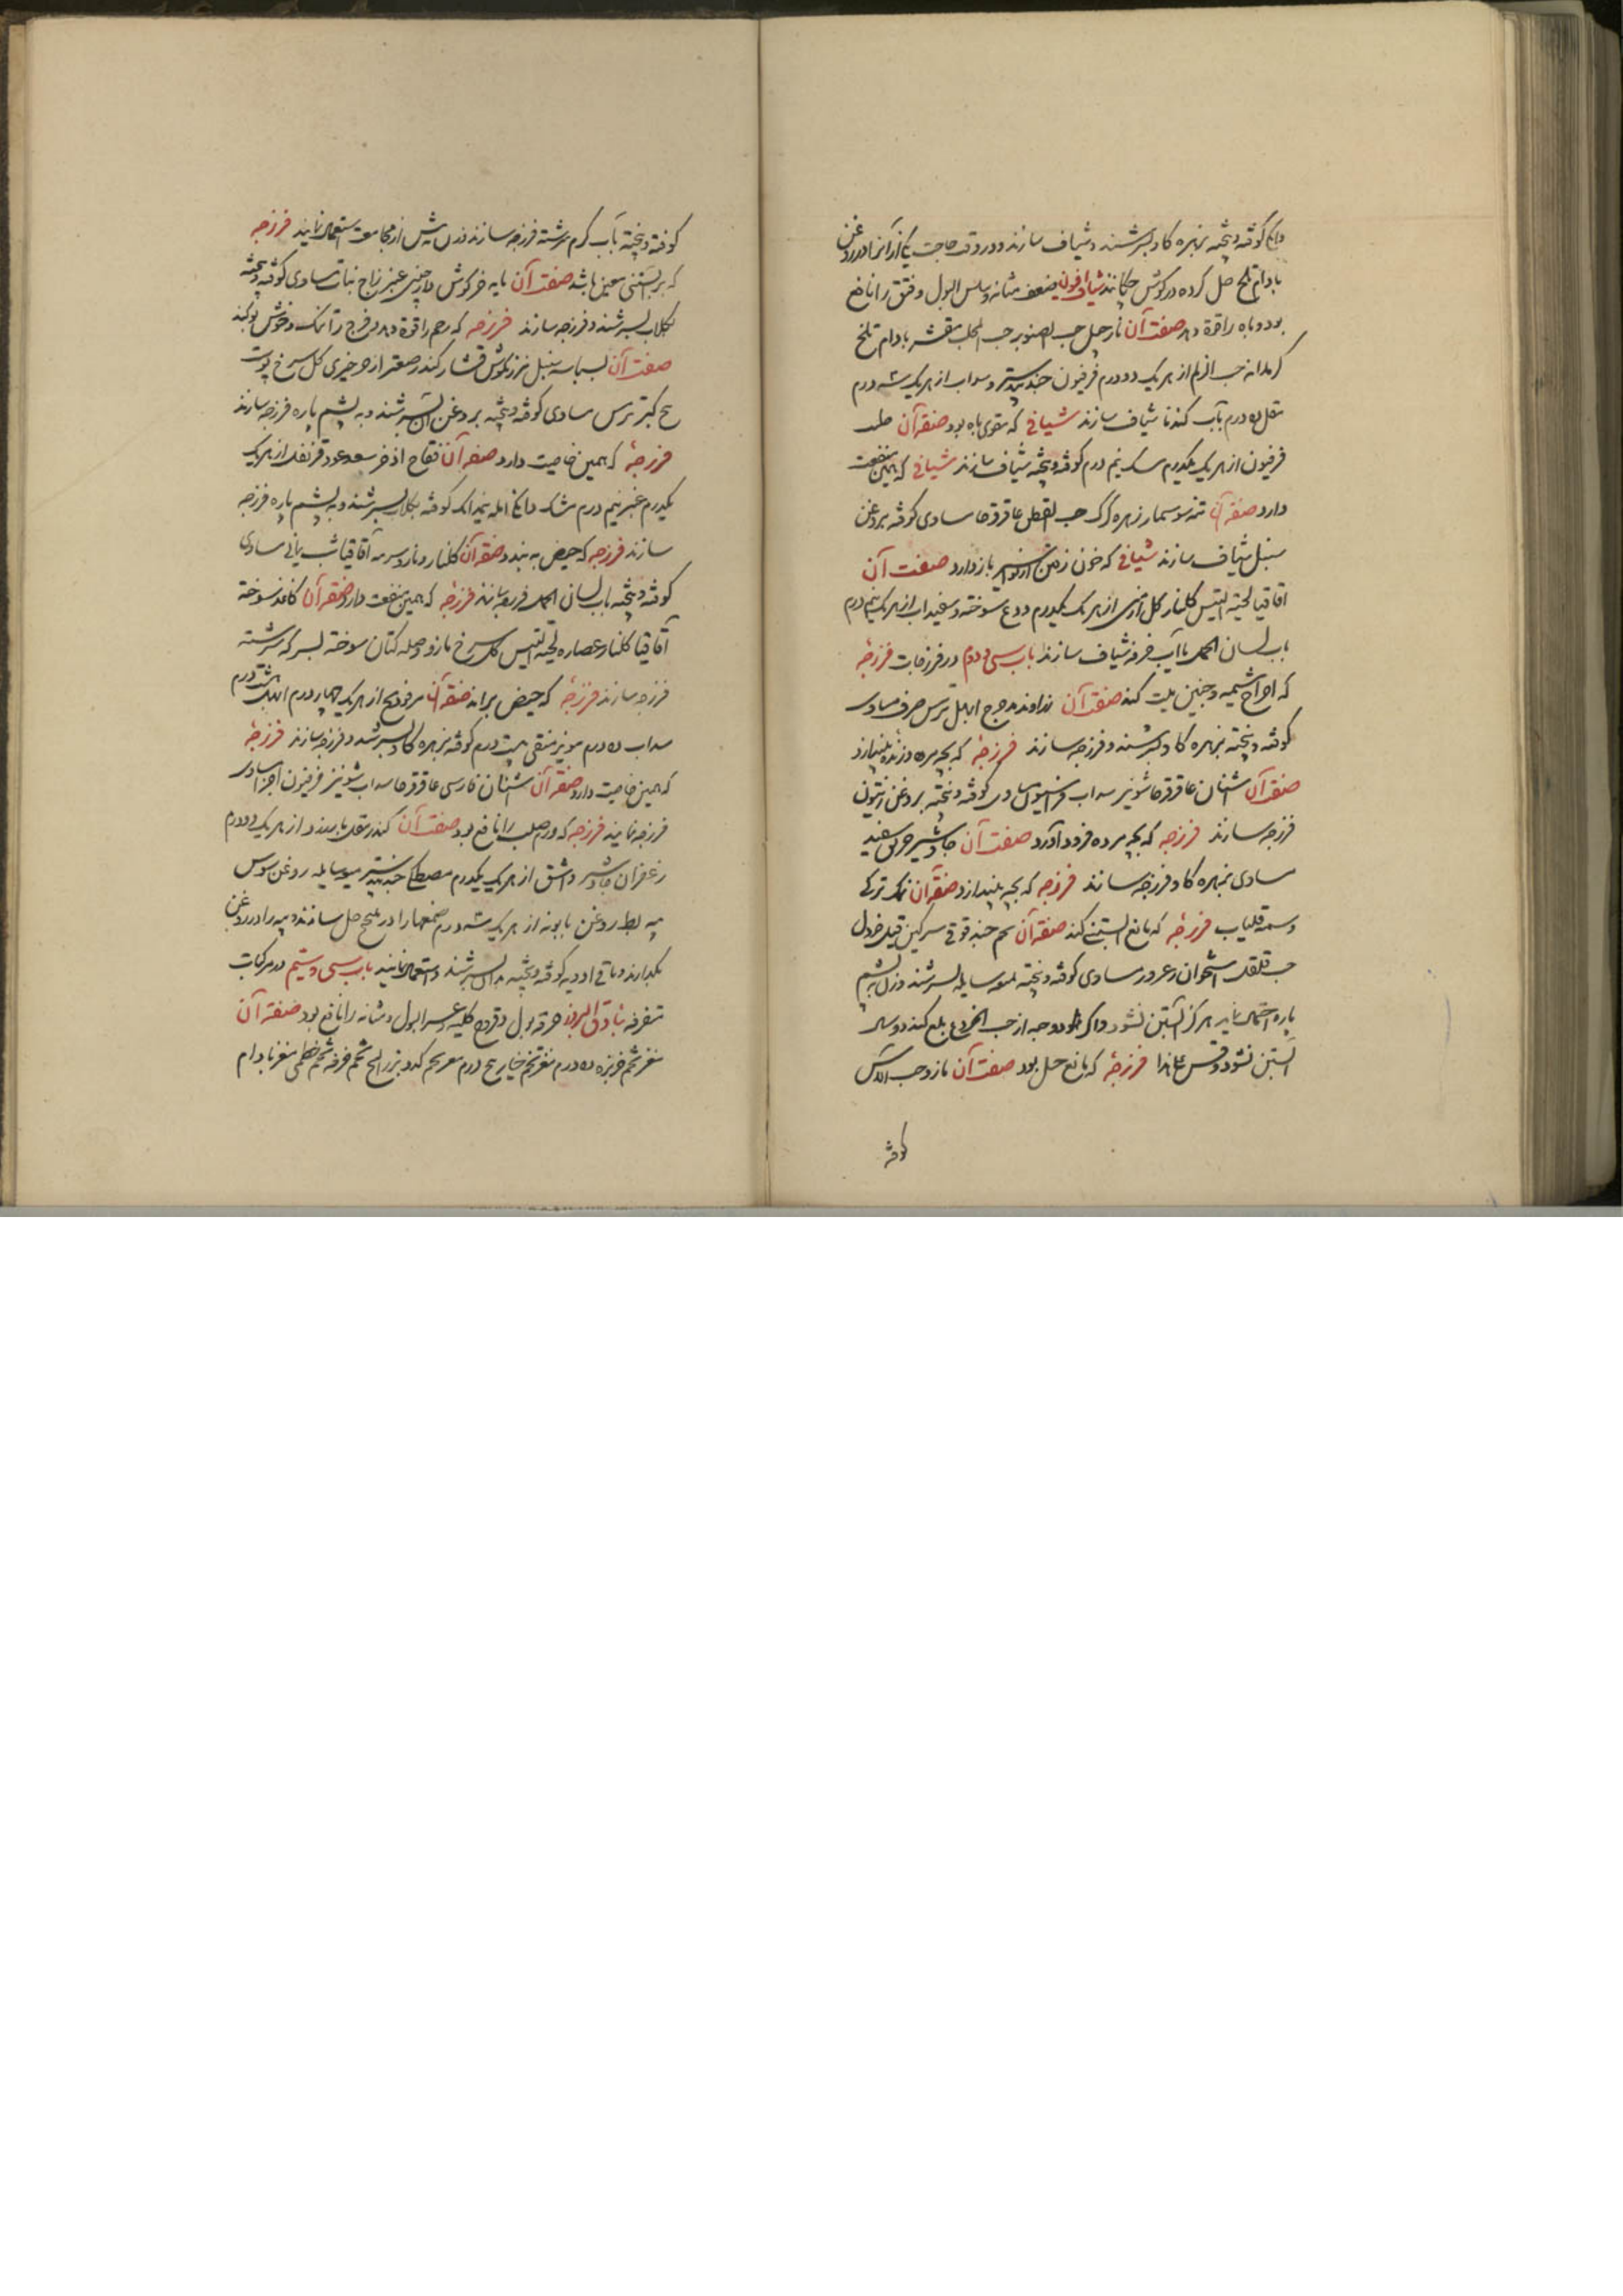 دانکی کوفته و بیخته بزهره کاو بسرشند و شیاف سازند و در وقت حاجت یکی از آنرا در روغن
بادام تلخ حل کرده در کوش چکانند شیاف افیون ضعف مثانه و سلس البول و فتق را نافع
بود و باه را قوة دهد صفت آن نارجیل حب الصنوبر حب المحلب مقشر بادام تلخ
کرمدانه حب الزلم از هر یک دو درم فرفیون جندبیدستر و سداب از هر یک سه درم
مقل ده درم بآب کندنا شیاف سازند شیافی که مقوی باه بود صفة آن
فرفیون از هر یک یکدرم سک نیم درم کوفته و بیخته شیاف سازند شیافی که همین منفعت
دارد صفة آن سوسمار زهره کرک حب القطن عاقرقرحا مساوی کوفته بروغن
سنبل شیاف سازند شیافی که خون رفتن از بواسیر باز دارد صفت آن
اقاقیا لحیة التیس کلنار کل ارمنی از هر یک یکدرم و ودع سوخته و سفیداب از هر یک نیم درم
باب لسان الحمل یا آب خرفه شیاف سازند باب سی و دوم در فرزجات فرزجهٔ
که اخراج مشیمه و جنین میت کند صفت آن زراوند مدحرج ابهل ترمس حرف مساوی
کوفته و بیخته بزهره کاو بسرشند و فرزجه سازند فرزجهٔ که بچه مرده و زنده بیندازد
صفة آن اشنان عاقرقرحا شونیز سداب فراسیون مساوی کوفته و بیخته بروغن زیتون
فرزجه سازند فرزجه که بچه مرده فرود آورد صفت آن جاوشیر خربق سفید
مساوی بزهره کاو فرزجه سازند فرزجه که بچه بیندازد صفة آن نمک ترکی
وسمه قلیاب فرزجهٔ که مانع آبستنی کند صفة آن تخم حندقوقی سرکین فیل خردل
حب قلقل استخوان زعرور مساوی کوفته و بیخته بمیعه سایله بسرشند و زن پشم
پاره احتمال نماید هرکز آبستن نشود و اکر دو حبه از حب الخروع بلع کند دو سال
آبستن نشود و قس علی هذا فرزجهٔ که مانع حمل بود صفت آن مازو حب الآس
کوفته
کوفته و بیخته بآب کرم سرشته فرزجه سازند زن پیش از مجامعت استعمال نمایند فرزجه
که بر آبستنی معین باشد صفت آن مایه خرکوش دارچینی عنبر زاج نبات مساوی کوفته و بیخته
بکلاب بسرشند و فرزجه سازند فرزجه که رحم را قوة دهد و فرج را تنک و خوش بو کند
صفت آن بسباسه سنبل مرزنکوش قشار کندر صعتر اذخر خیری کل سرخ پوست
بیخ کبر ترمس مساوی کوفته و بیخته بروغن آن بسرشند و به پشم پاره فرزجه سازند
فرزجهٔ که همین خاصیت دارد صفة آن فقاح اذخر سعد عود قرنفل از هر یک
یکدرم عنبر نیم درم مشک دانکی آمله نیم دانک کوفته بکلاب بسرشند و به پشم پاره فرزجه
سازند فرزجه که حیض به بندد صفة آن کلنار سرمه اقاقیا شب یمانی مساوی
کوفته و بیخته باب لسان الحمل فرزجه سازند فرزجه که همین منفعت دارد صفة آن کاغذ سوخته
آقاقیا کلنار عصاره لحیة التیس کل سرخ مازو و صله کتان سوخته بسرکه سرشته
فرزجه سازند فرزجهٔ که حیض براند صفة آن مر فودنج از هر یک چهار درم ابهل هشت درم
سداب ده درم مویز منقی بیست درم کوفته بزهره کاو بسرشند و فرزجه سازند فرزجهٔ
که همین خاصیت دارد صفة آن اشنان فارسی عاقرقرحا سداب شونیز فرفیون اجزا مساوی
فرزجه نمایند فرزجه که ورم صلب را نافع بود صفت آن کندر مقل بارزد از هر یک دو درم
زعفران جاوشیر و اشق از هر یک یکدرم مصطکی جندبیدستر میعه سایله روغن سوسن
پیه بط روغن بابونه از هر یک سه درم صمغها را در حل سازند و پیه را در روغن
بکدازند و باقی ادویه کوفته و بیخته بدان بسرشند و استعمال نمایند باب سی و سیم در مرکبات
متفرقه بنادق البزور حرقة بول و قروح کلیه و عسر البول و مثانه را نافع بود صفة آن
مغز تخم خربزه ده درم مغز تخم خیار پنج درم مغز تخم کدو بزر البنج تخم خرفه تخم خطمی مغز بادام